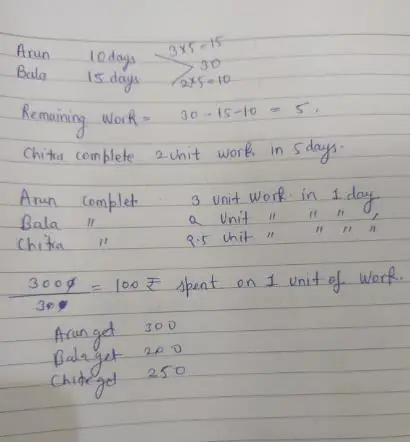 Arun 10 days 3×5=15
30
Bala 15 days 2×5=10
Remaining Work = 30-15-10 = 5.
Chitra complete 2 unit work in 5 days.
Arun complet 3 unit work in 1 day
Bala " 2 unit " " " ,
Chitra " 2.5 unit " " " "
3000
300 = 100 ₹ spent on 1 unit of work.
Arun get 300
Bala get 200
Chitr get 250